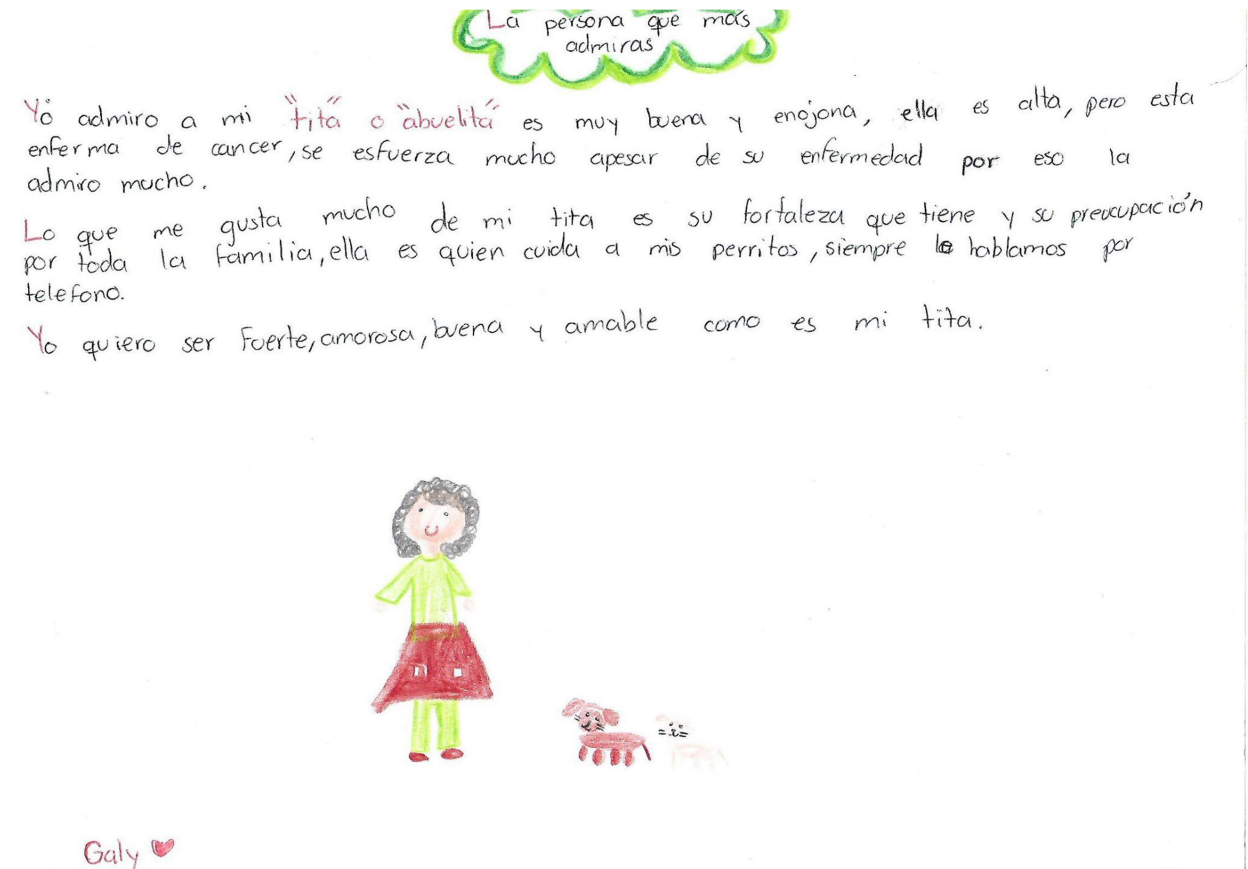 La persona que más
admiras
Yo admiro a mi "tita" o "abuelita" es muy buena y enojona, ella es alta, pero esta
enferma de cancer, se esfuerza mucho apesar de su enfermedad por eso la
admiro mucho.
Lo que me gusta mucho de mi tita es su fortaleza que tiene y su preucupación
por toda la familia, ella es quien cuida a mis perritos, siempre le hablamos por
telefono.
Yo quiero ser fuerte, amorosa, buena y amable como es mi tita.
Galy